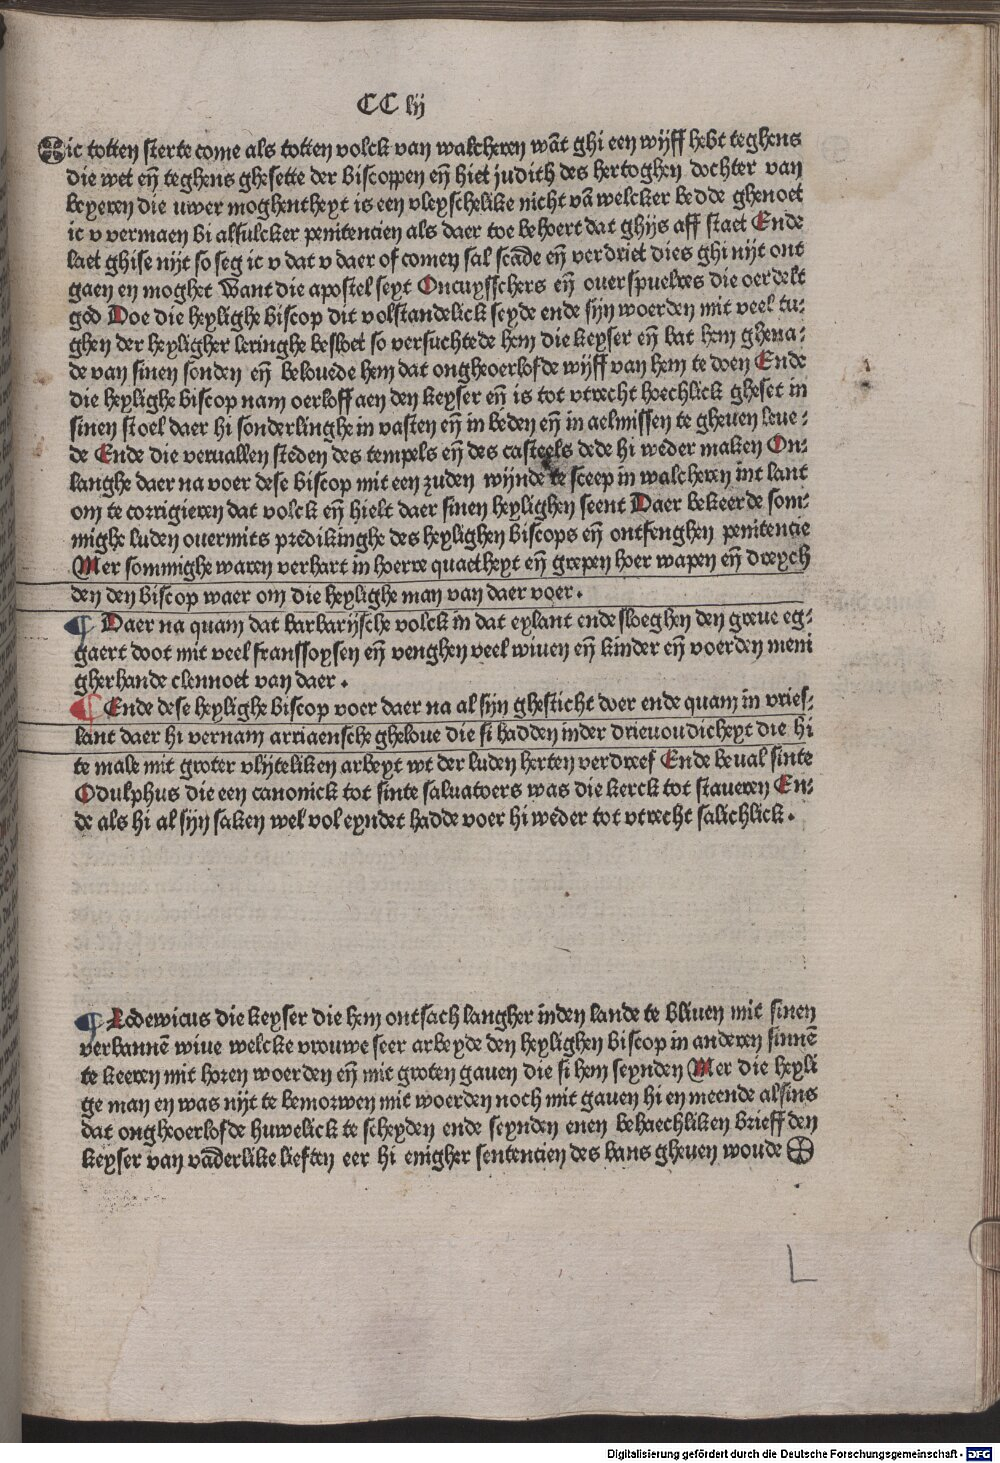 CC lij
ic totten sterte come als totten volck van walcheren wāt ghi een wijff hebt teghens
die wet eñ teghens ghesette der biscoppen eñ hiet judith des hertoghen dochter van
beyeren die uwer moghentheyt is een vleyschelike nicht vā welcker bedde ghenoet
ic v vermaen bi alsulcker penitencien als daer toe behoert dat ghijs aff staet Ende
laet ghise nijt so seg ic v dat v daer of comen sal scāde eñ verdriet dies ghi nijt ont
gaen en moghet Want die apostel seyt Oncuysschers eñ ouerspuelres die oerdelt
god Doe die heylighe biscop dit volstandelick seyde ende sijn woerden mit veel tu⸗
ghen der heyligher leringhe besloet so versuchtede hem die keyser eñ bat hem ghena⸗
de van sinen sonden eñ belouede hem dat ongheoerlofde wijff van hem te doen Ende
die heylighe biscop nam oerloff aen den keyser eñ is tot vtrecht hoechlick gheset in
sinen stoel daer hi sonderlinghe in vasten eñ in beden eñ in aelmissen te gheuen leue⸗
de Ende die veruallen steden des tempels eñ des casteels dede hi weder maken On⸗
langhe daer na voer dese biscop mit een zuden wijnde te sceep in walcheren int lant
om te corrigieren dat volck eñ hielt daer sinen heylighen seent Daer bekeerde som⸗
mighe luden ouermits predikinghe des heylighen biscops eñ ontfenghen penitencie
Mer sommighe waren verhart in hoerre quaetheyt eñ grepen hoer wapen eñ dreych
den den biscop waer om die heylighe man van daer voer.
¶ Daer na quam dat barbarijsche volck in dat eylant ende sloeghen den greue eg⸗
gaert doot mit veel franssoysen eñ venghen veel wiuen eñ kinder eñ voerden meni
gherhande clennoet van daer.
¶ Ende dese heylighe biscop voer daer na al sijn ghesticht doer ende quam in vries⸗
lant daer hi vernam arriaensche gheloue die si hadden inder drieuoudicheyt die hi
te male mit groter vlijteliken arbeyt wt der luden herten verdreef Ende beval sinte
Odulphus die een canonick tot sinte saluatoers was die kerck tot staueren En⸗
de als hi al sijn saken wel vol eyndet hadde voer hi weder tot vtrecht salichlick.
¶ Lodewicus die keyser die hem ontsach langher inden lande te bliuen mit sinen
verbannē wiue welcke vrouwe seer arbeyde den heylighen biscop in anderen sinnē
te keeren mit horen woerden eñ mit groten gauen die si hem seynden Mer die heyli
ge man en was nijt te bemorwen mit woerden noch mit gauen hi en meende alsins
dat ongheoerlofde huwelick te scheyden ende seynden enen behaechliken brieff den
keyser van vāderlike lieften eer hi enigher sentencien des bans gheuen woude
L
Digitalisierung gefördert durch die Deutsche Forschungsgemeinschaft - DFG